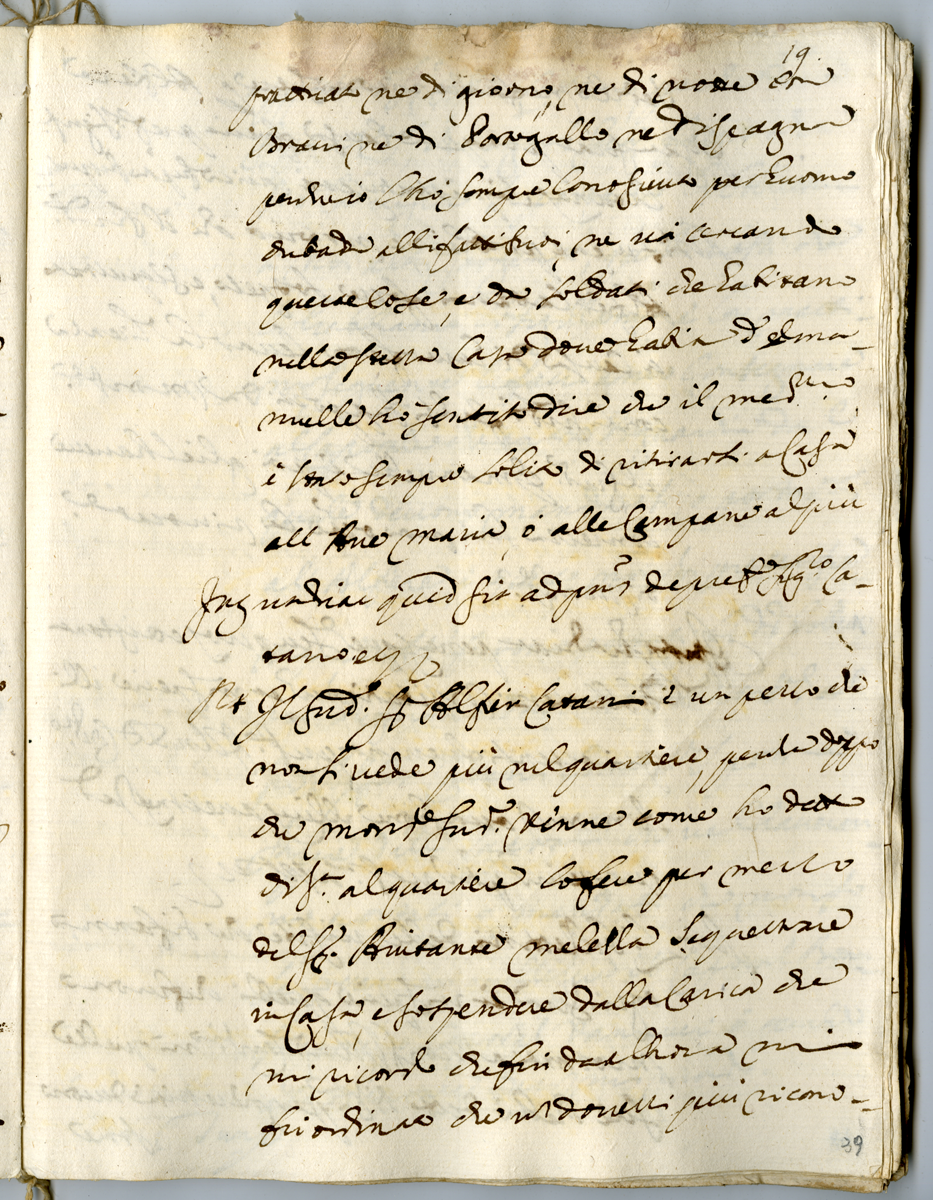 19
pratticato ne di giorno, ne di notte con
Bravi ne di Portogallo ne di Spagna
perche io l'hò sempre conosciuto per huomo
che bada alli fatti suoi, ne và cercando
queste cose, e da soldati che habitano
nella stessa casa dove habita d.º ema-
nuelle hò sentito dire che il med.mo
è stato sempre solito di ritirarsi a casa
all'Ave maria, ò alle Campane al più
Int quid sit ad p̄ns de Ca-
tano ey
Rt Il sud.º Sr Alfier Catani è un pezzo che
non si vede più nel quartiere, perche doppo
che mons.r sud.º venne come ho detto
di s.a al quartiere lo fece per mezzo
del Sr. Aiutante melella sequestrare
in Casa, e sospendere dalla Carica che
mi ricordo che fin da all'hora mi
fu ordinato che nō dovessi più ricono-
39